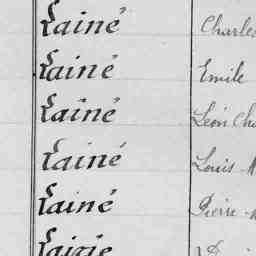 Lainé Charles
Lainé Emile
Lainé Léon Cha
Lainé Louis M
Lainé Pierre
Lainé